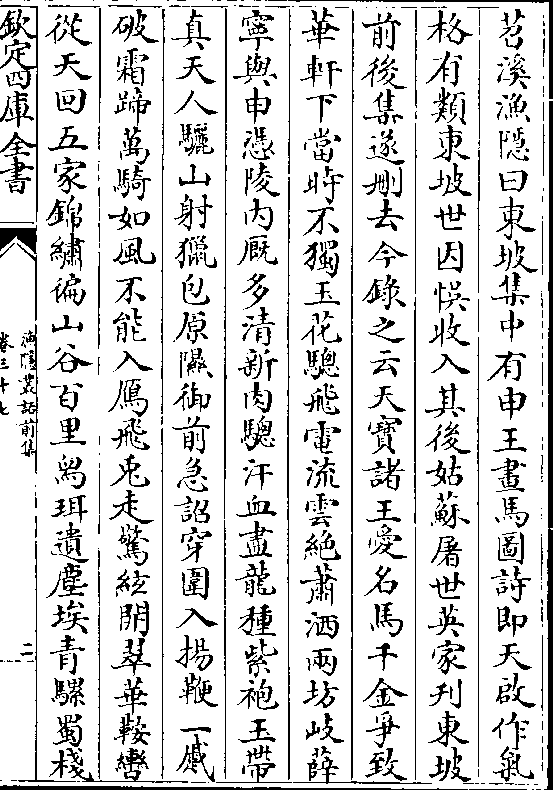 苕溪漁隱曰東坡集中有申王畫馬圖詩即天啟作氣
格有類東坡世因悞收入其後姑蘇居世英家刋東坡
前後集遂刪去今錄之云天寶諸王愛名馬千金爭致
華軒下當時不獨玉花驄飛電流雲絶蕭洒兩坊岐薛
寧與申憑陵内厩多清新肉驄汗血盡龍種紫袍玉帶
真天人驪山射獵包原隰御前急詔穿圍入揚鞭一蹙
破霜蹄萬騎如風不能入鴈飛兎走驚絃開翠華鞍轡
從天回五家錦繡徧山谷百里舄珥遺塵埃青騾蜀棧
欽定四庫全書
漁隱叢話前集
卷三十七
二